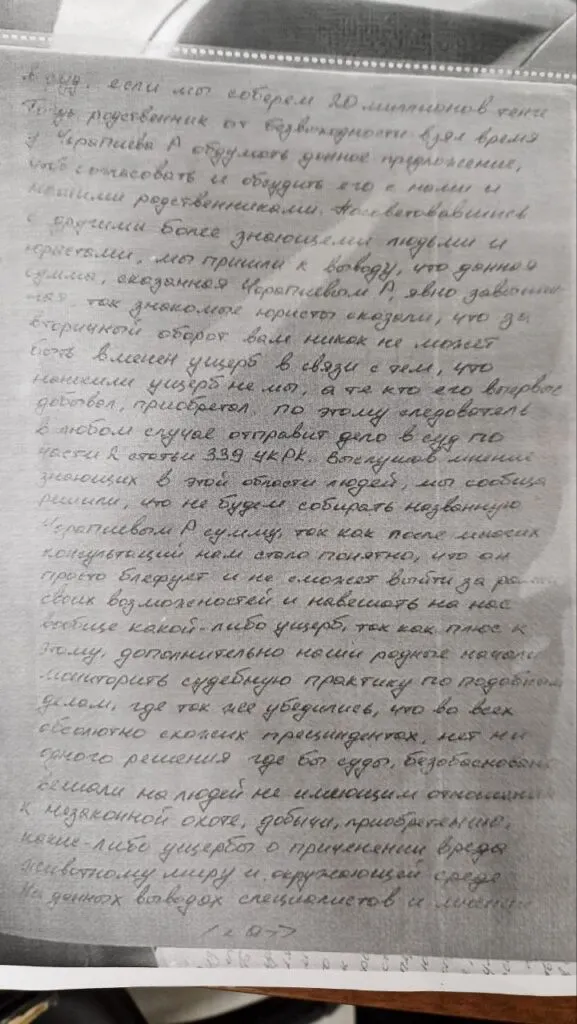 в суд. если мы соберем 20 миллионов тенге
родственник от безвыходности взял время
у Чорапиева А обдумать данное предложение,
чтоб согласовать и обсудить его с нами и
нашими родственниками. Насоветовавшиеся
с другими более знающеми людьми и
юристами, мы пришли к выводу, что данная
сумма, сказанная Чорапиевым А, явно завыше
ная. так знакомые юристы сказали, что за
вторичный оборот вам никак не может
быть вменен ущерб в связи с тем, что
наносили ущерб не мы, а те кто его впервые
добывал, приобретал. по этому следователь
в любом случае отправит дело в суд по
части 2 статьи 339 УКРК. Выслушав мнение
знающих в этой области людей, мы сообща
решили, что не будем собирать названную
Чорапиевым А сумму, так как после многих
консультаций нам стало понятно, что он
просто блефует и не сможет выйти за рамки
своих возможеностей и навешать на нас
вообще какой-либо ущерб, так как плюс к
этому, дополнительно наши родные начали
мониторить судебную практику по подобным
делам, где так же убедились, что во всех
абсолютно схожих прециндентах, нет ни
одного решения где бы суды, безобаснованно
вешали на людей не имеющим отношения
к незаконной охоте, добычи, приобретению,
какие-либо ущербы о приченении вреда
животному миру и окружающей среде
На данных выводах специалистов и мнении